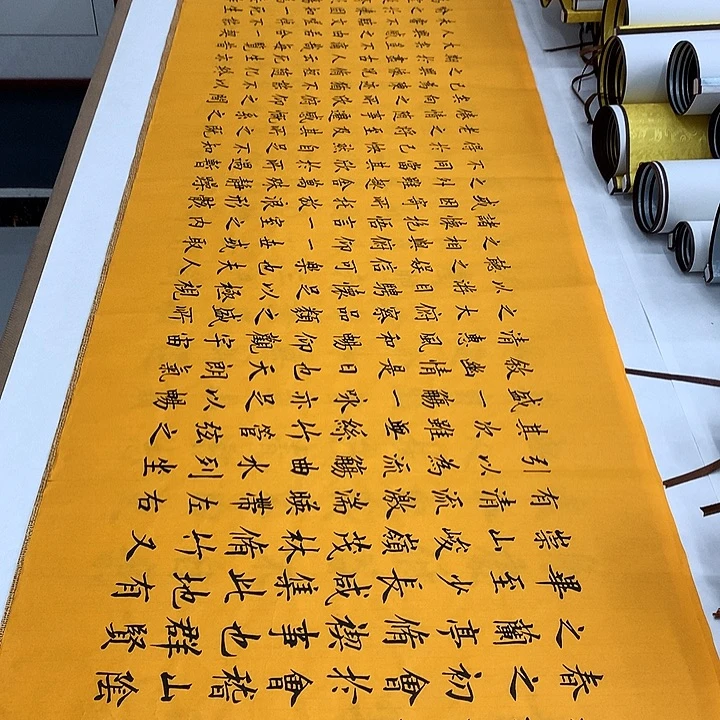 春之初會於會稽山陰
之蘭亭脩禊事也群賢
畢至少長咸集此地有
崇山峻嶺茂林脩竹又
有清流激湍暎帶左右
引以為流觴曲水列坐
其次雖無絲竹管弦之
盛一觴一詠亦足以暢
敘幽情是日也天朗氣
清惠風和暢仰觀宇宙
之大俯察品類之盛所
以目騁懷足以極視
聽之娛信可樂也夫人
之相與俯仰一世或取
諸懷抱悟言一室之內
或因寄所託放浪形骸
之外雖趣舍萬殊靜躁
不同當其欣於所遇暫
得於己快然自足不知
老之將至及其所之既
惓情隨事遷感慨係之
矣向之所欣俯仰之間